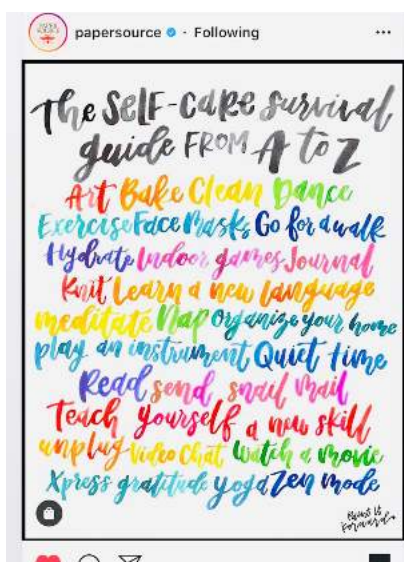 papersource • Following
The SELF-CARE survival
guide FROM A to Z
Art Bake Clean Dance
Exercise Face Masks Go for a walk
Hydrate Indoor games Journal
Knit Learn a new language
meditate Nap Organize your home
play an instrument Quiet time
Read send snail mail
Teach yourself a new skill
unplug Video Chat Watch a movie
Xpress gratitude yoga Zen mode